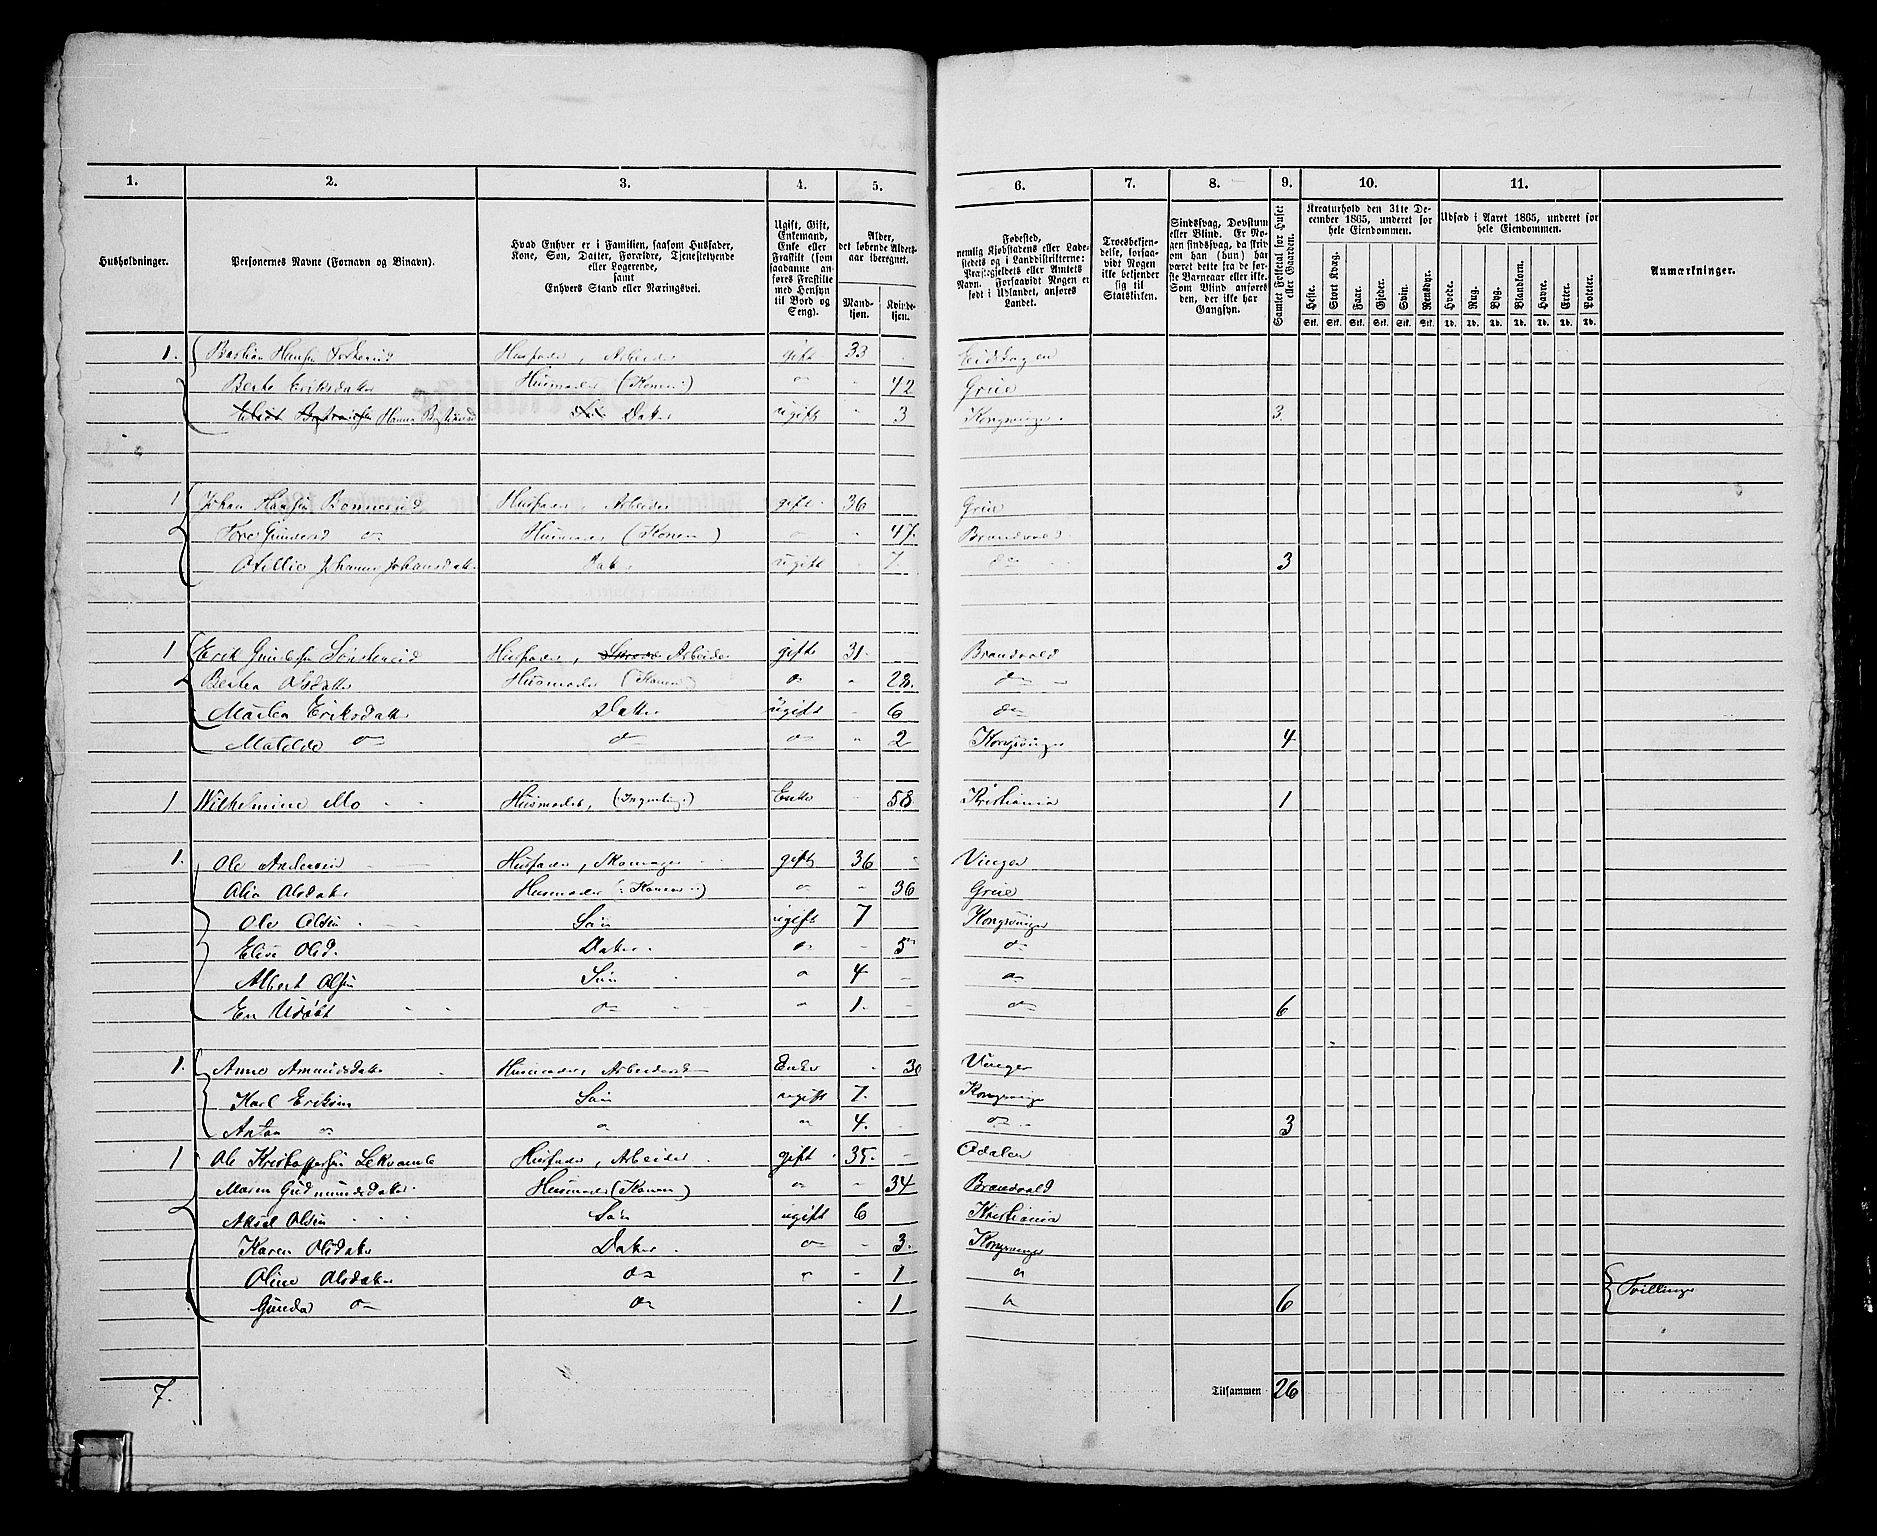 1. 2. 3. 4. 5. 6. 7. 8. 9. 10. 11.
Husholdninger.
Personernes Navne (Fornavn og Binavn).
Hvad Enhver er i Familien, saasom Husfader, Kone, Søn, Datter, Forældre, Tjenestetyende eller Logerende,
samt
Enhvers Stand eller Næringsvei.
Ugift, Gift, Enkemand, Enke eller Fraskilt (som saadanne anføres Fraskilte med Hensyn til Bord og Seng).
Alder, det løbende Aldersaar iberegnet.
Mandkjøn. Kvindekjøn.
Fødested, nemlig Kjøbstadens eller Ladestedets og i Landdistrikterne: Præstegjeldets eller Amtets Navn. Forsaavidt Nogen er født i Udlandet, anføres Landet.
Troesbekjendelse, forsaavidt Nogen ikke bekjender sig til Statskirken.
Sindssvag, Døvstum eller Blind. Er Nogen sindssvag, da skrives om han (hun) har været dette fra de første Barneaar eller ikke. Som Blind anføres den, der ikke har Gangsyn.
Samlet Folketal for Huset eller Gaarden.
Kreaturhold den 31te December 1865, underet for hele Eiendommen.
Heste. Stort Kvæg. Faar. Gjeder. Svin. Rensdyr.
Stk. Stk. Stk. Stk. Stk. Stk.
Udsæd i Aaret 1865, underet for hele Eiendommen.
Hvede. Rug. Byg. Blandkorn. Havre. Erter. Poteter.
Td. Td. Td. Td. Td. Td. Td.
Anmærkninger.
1. Bastian Hansen Husfader, Arbeider gift 33 Eidskogen
Berte Eriksdatter Husmoder (Konen) " 42 Grue
Hanna Datter ugift 3 Kongsvinger 3.
1 Johan Hansen Husfader, Arbeider gift 36 Grue
Husmoder (Konen) " 47. Brandvold
Otellie Johanne Johansdatter Datter ugift 7. do 3
1 Erik Gundersen Husfader, Arbeider gift 31. Brandvold
Berthea Olsdatter Husmoder (Konen) " 28. do
Marthea Eriksdatter Datter ugift 6 do
Matilde do do do 2 Kongsvinger 4
1 Wilhelmine Mo Husmoder, Enke 58 Kristiania 1
1. Ole Andersen Husfader, Skomager gift 36 Vinger
Olia Olsdatter Husmoder (Konen) " 36 Grue
Ole Olsen Søn ugift 7 Kongsvinger
Elise Olsd. Datter do 5 do
Albert Olsen Søn " 4 do
En Udøbt do " 1. do 6
1. Anne Amundsdatter Husmoder, Enke 30 Vinger
Karl Eriksen Søn ugift 7. Kongsvinger
Anton do do " 4. do 3
1 Ole Kristoffersen Husfader, Arbeider gift 35. Odalen
Maren Gudmundsdatter Husmoder (Konen) " 34 Brandvold
Aksel Olsen Søn ugift 6 Kristiania
Karen Olsdatter Datter do 3. Kongsvinger
Oline Olsdatter do " 1 do
Gunda do do 1 do 6 Tvillinger
7. Tilsammen 26